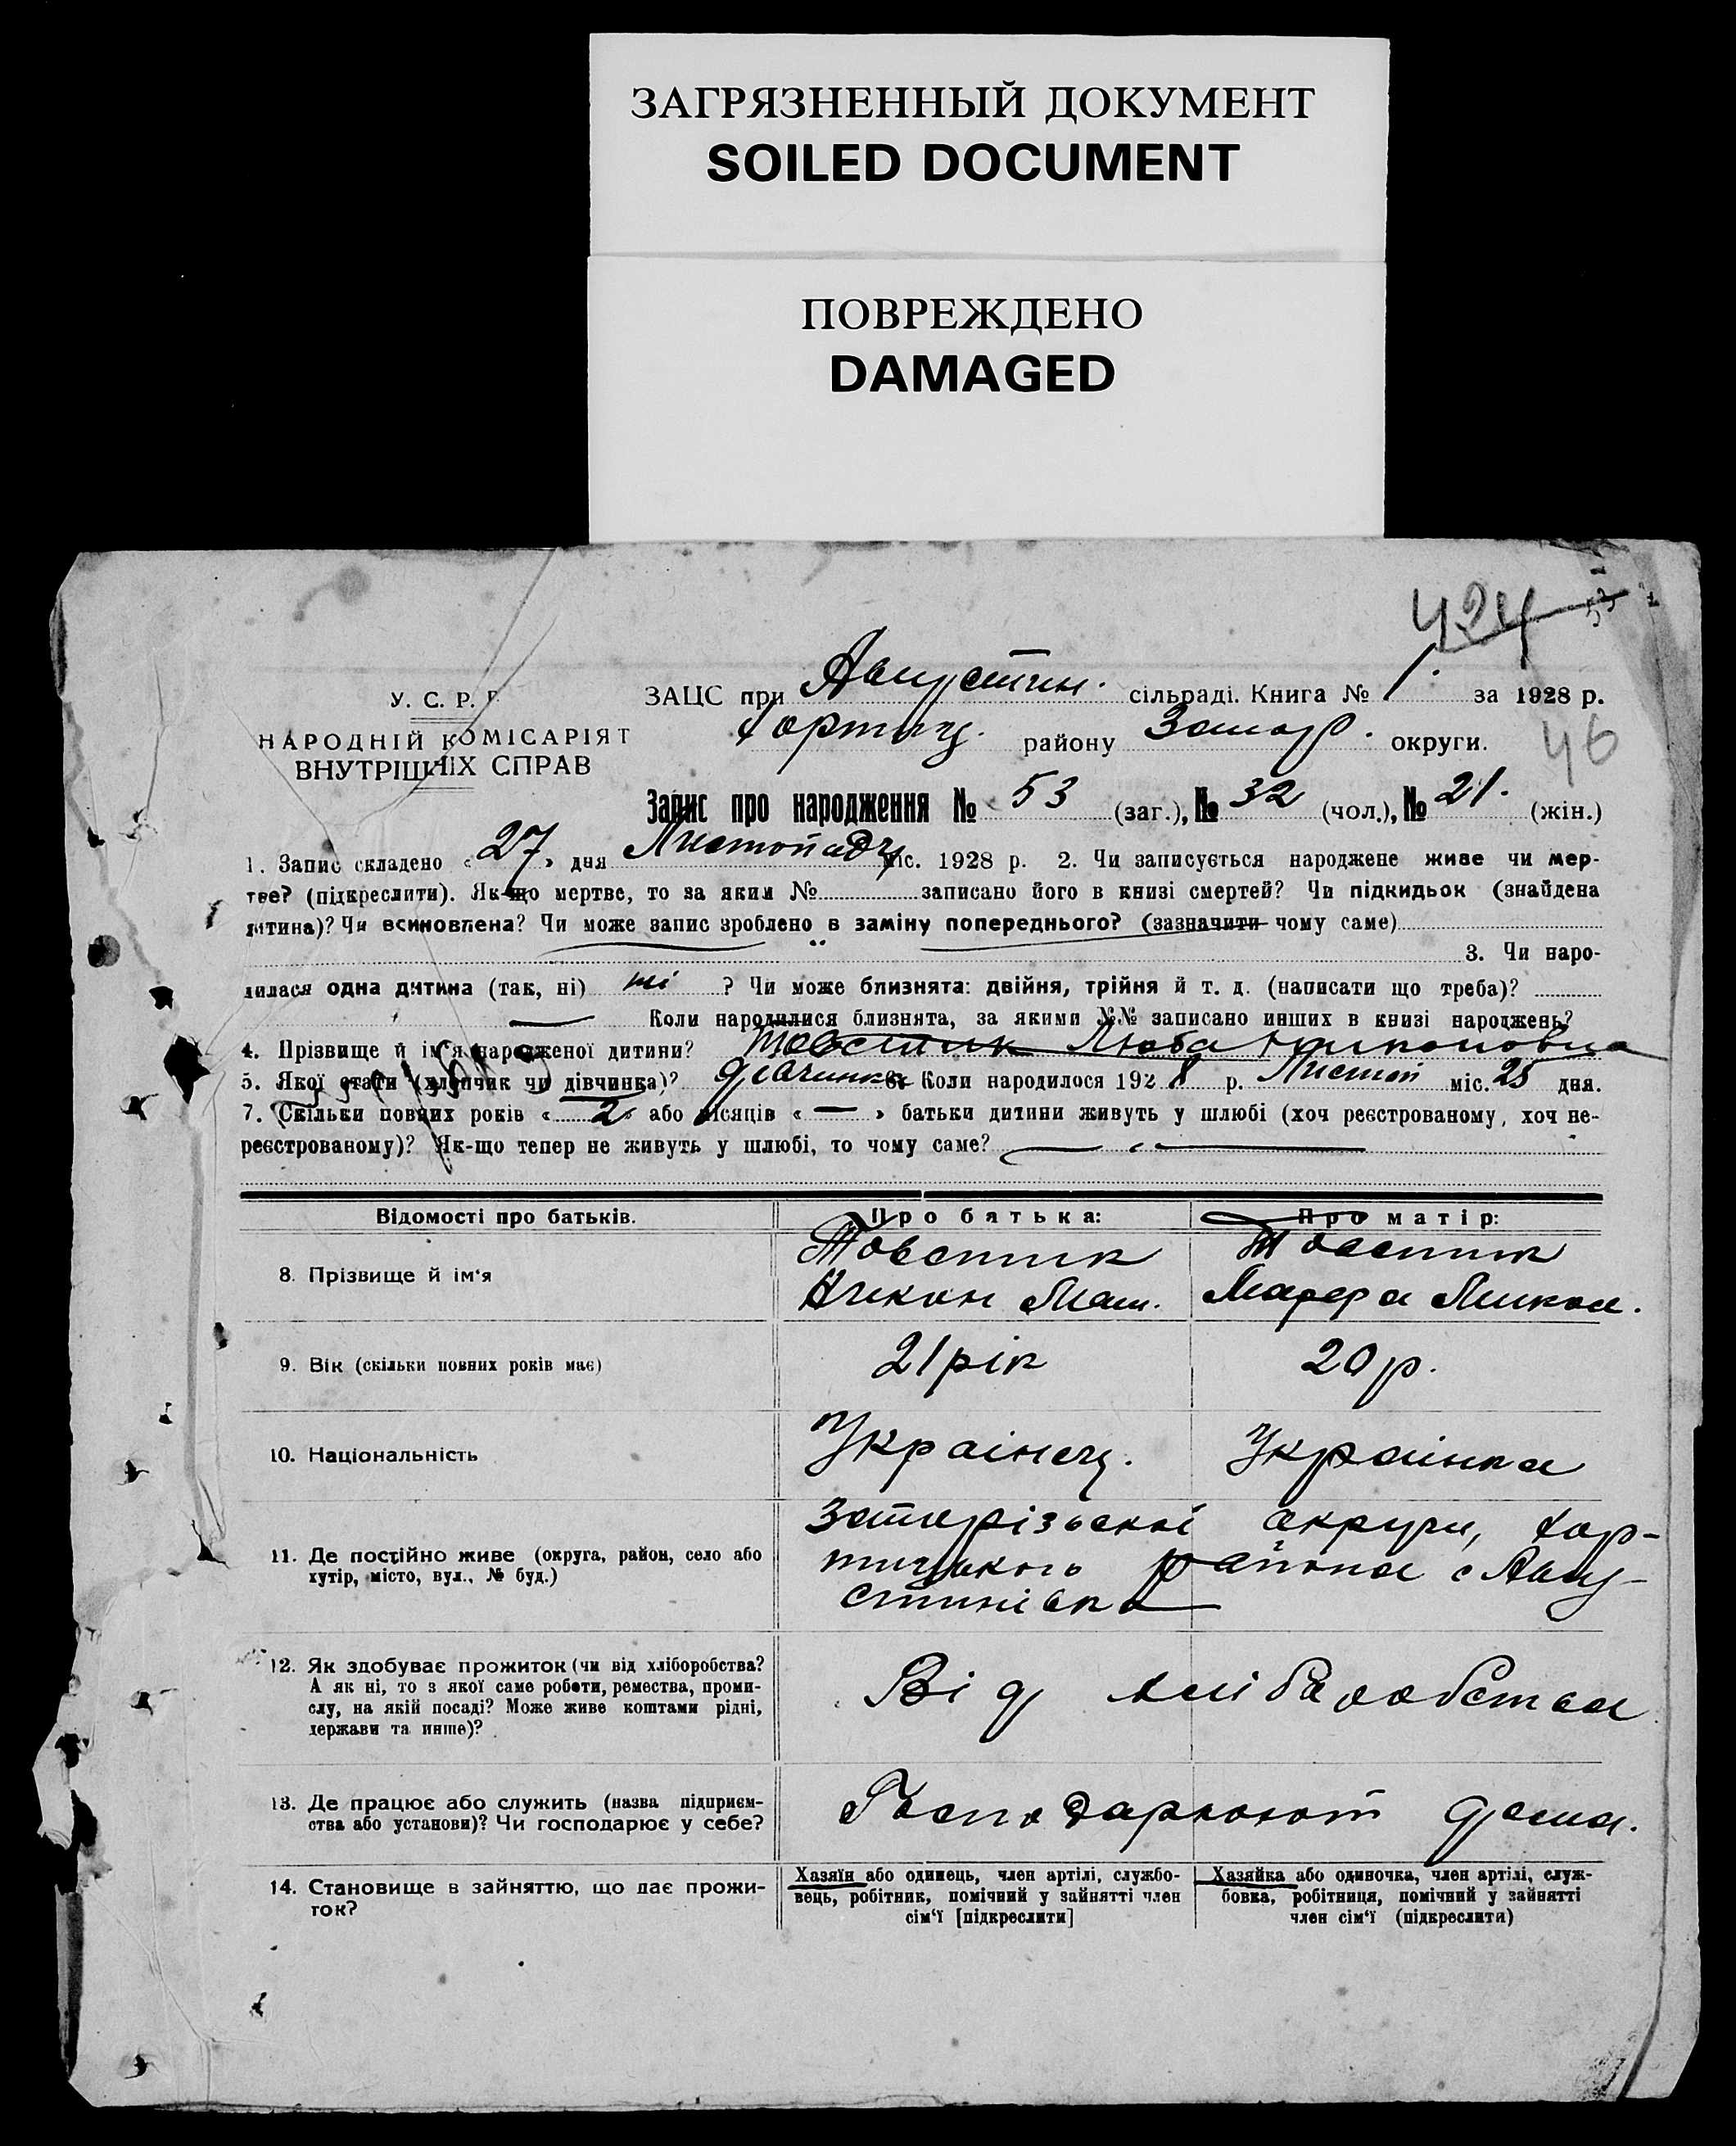 ЗАГРЯЗНЕННЫЙ ДОКУМЕНТ
SOILED DOCUMENT
ПОВРЕЖДЕНО
DAMAGED
424
У. С. Р. Р
НАРОДНІЙ КОМІСАРІЯТ
ВНУТРІШНІХ СПРАВ
ЗАЦС при Августин. сільраді. Книга № 1. за 1928 р.
Хортиц. району Запор. округи.
46
Запис про народження № 53 (заг.), № 32 (чол.), № 21. (жін.)
1. Запис складено « 27 » дня Листопаду міс. 1928 р. 2. Чи записується народжене живе чи мер-
тве? (підкреслити). Як-що мертве, то за яким № записано його в книзі смертей? Чи підкидьок (знайдена
дитина)? Чи всиновлена? Чи може запис зроблено в заміну попереднього? (зазначити чому саме)
3. Чи наро-
дилася одна дитина (так, ні) ні ? Чи може близнята: двійня, трійня й т. д. (написати що треба)?
— Коли народилися близнята, за якими №№ записано инших в книзі народжень?
4. Прізвище й ім'я народженої дитини? Товстик Люба Никоновна
5. Якої стати (хлопчик чи дівчинка)? дівчинка 6. Коли народилося 1928 р. Листоп міс. 25 дня.
7. Скільки повних років « 2 » або місяців « — » батьки дитини живуть у шлюбі (хоч реєстрованому, хоч не-
реєстрованому)? Як-що тепер не живуть у шлюбі, то чому саме? —
Відомості про батьків. Про батька: Про матір:
8. Прізвище й ім'я Товстик Товстик
Никон Мат. Марфа Микол.
9. Вік (скільки повних років має) 21 рік 20 р.
10. Національність Українец. Українка
11. Де постійно живе (округа, район, село або
хутір, місто, вул., № буд.)
Запорізької округи, Хор-
тицького района с Авгу-
стинівка
12. Як здобуває прожиток (чи від хліборобства?
А як ні, то з якої саме роботи, ремества, проми-
слу, на якій посаді? Може живе коштами рідні,
держави та инше)?
Від хліборобства
13. Де працює або служить (назва підприєм-
ства або установи)? Чи господарює у себе?
Господарюют дома.
14. Становище в зайняттю, що дає прожи-
ток?
Хазяїн або одинець, член артілі, службо-
вець, робітник, помічний у зайнятті член
сім'ї [підкреслити]
Хазяйка або одиночка, член артілі, служ-
бовка, робітниця, помічний у зайнятті
член сім'ї (підкреслити)